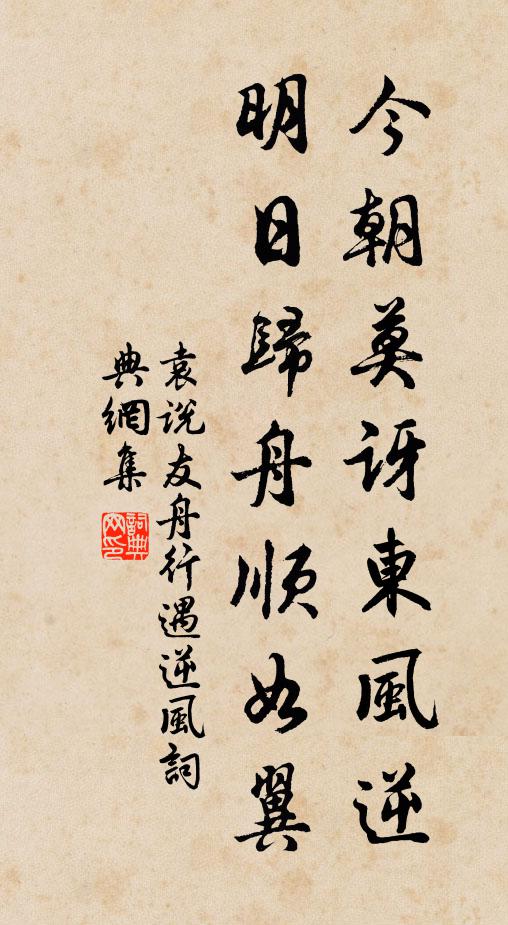 今朝莫訝東風逆
明日歸舟順如翼
袁説友舟行遇逆風詞
典網集
詞典網印